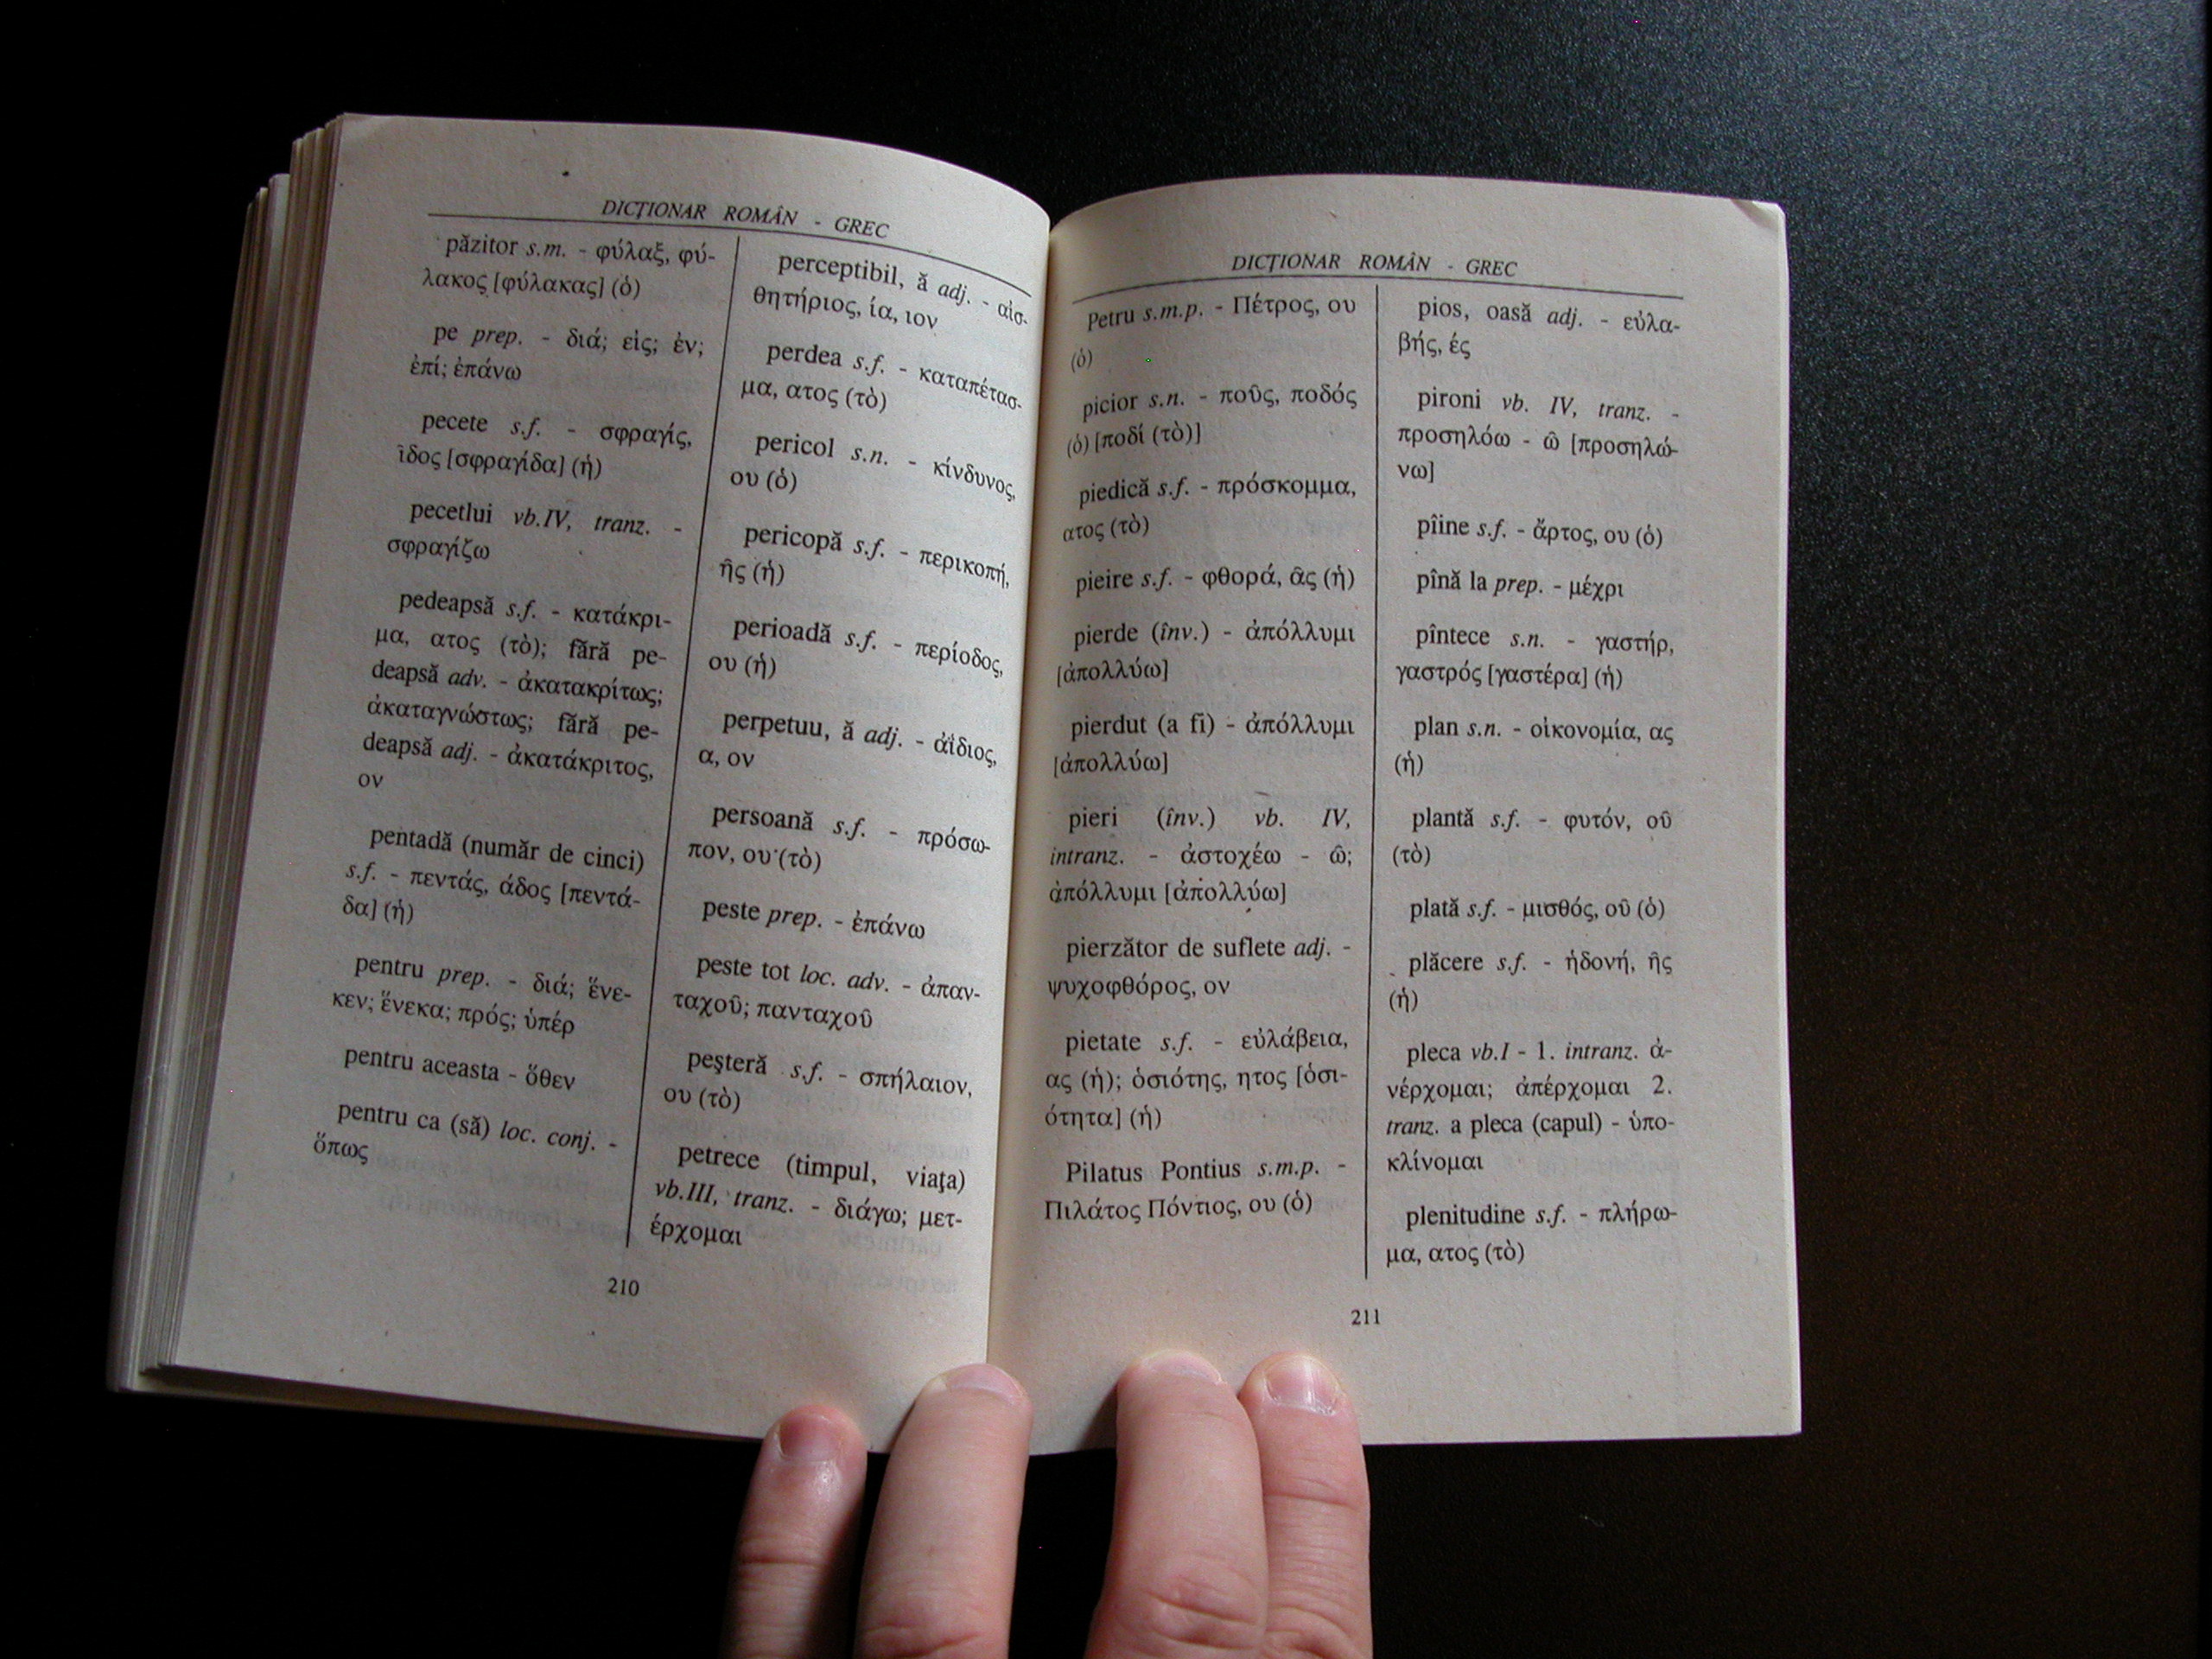 DICŢIONAR ROMÂN - GREC
păzitor s.m. - φύλαξ, φύ-
λακος [φύλακας] (ὁ)
pe prep. - διά; εἰς; ἐν;
ἐπί; ἐπάνω
pecete s.f. - σφραγίς,
ῖδος [σφραγίδα] (ἡ)
pecetlui vb.IV, tranz. -
σφραγίζω
pedeapsă s.f. - κατάκρι-
μα, ατος (τὸ); fără pe-
deapsă adv. - ἀκατακρίτως;
ἀκαταγνώστως; fără pe-
deapsă adj. - ἀκατάκριτος,
ον
pentadă (număr de cinci)
s.f. - πεντάς, άδος [πεντά-
δα] (ἡ)
pentru prep. - διά; ἕνε-
κεν; ἕνεκα; πρός; ὑπέρ
pentru aceasta - ὅθεν
pentru ca (să) loc. conj. -
ὅπως
perceptibil, ă adj. - αἰσ-
θητήριος, ία, ιον
perdea s.f. - καταπέτασ-
μα, ατος (τὸ)
pericol s.n. - κίνδυνος,
ου (ὁ)
pericopă s.f. - περικοπή,
ῆς (ἡ)
perioadă s.f. - περίοδος,
ου (ἡ)
perpetuu, ă adj. - ἀΐδιος,
α, ον
persoană s.f. - πρόσω-
πον, ου (τὸ)
peste prep. - ἐπάνω
peste tot loc. adv. - ἀπαν-
ταχοῦ; πανταχοῦ
peşteră s.f. - σπήλαιον,
ου (τὸ)
petrece (timpul, viaţa)
vb.III, tranz. - διάγω; μετ-
έρχομαι
210
DICŢIONAR ROMÂN - GREC
Petru s.m.p. - Πέτρος, ου
(ὁ)
picior s.n. - ποῦς, ποδός
(ὁ) [ποδί (τὸ)]
piedică s.f. - πρόσκομμα,
ατος (τὸ)
pieire s.f. - φθορά, ᾶς (ἡ)
pierde (înv.) - ἀπόλλυμι
[ἀπολλύω]
pierdut (a fi) - ἀπόλλυμι
[ἀπολλύω]
pieri (înv.) vb. IV,
intranz. - ἀστοχέω - ῶ;
ἀπόλλυμι [ἀπολλύω]
pierzător de suflete adj. -
ψυχοφθόρος, ον
pietate s.f. - εὐλάβεια,
ας (ἡ); ὁσιότης, ητος [ὁσι-
ότητα] (ἡ)
Pilatus Pontius s.m.p. -
Πιλάτος Πόντιος, ου (ὁ)
pios, oasă adj. - εὐλα-
βής, ές
pironi vb. IV, tranz. -
προσηλόω - ῶ [προσηλώ-
νω]
pîine s.f. - ἄρτος, ου (ὁ)
pînă la prep. - μέχρι
pîntece s.n. - γαστήρ,
γαστρός [γαστέρα] (ἡ)
plan s.n. - οἰκονομία, ας
(ἡ)
plantă s.f. - φυτόν, οῦ
(τὸ)
plată s.f. - μισθός, οῦ (ὁ)
plăcere s.f. - ἡδονή, ῆς
(ἡ)
pleca vb.I - 1. intranz. ἀ-
νέρχομαι; ἀπέρχομαι 2.
tranz. a pleca (capul) - ὑπο-
κλίνομαι
plenitudine s.f. - πλήρω-
μα, ατος (τὸ)
211